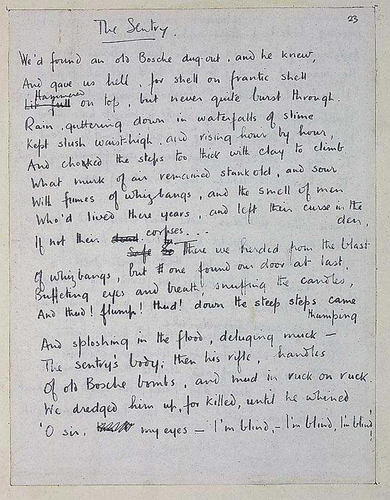 23
The Sentry.
We'd found an old Bosche dug-out, and he knew,
And gave us hell; for shell on frantic shell
Hammered
Lit full on top, but never quite burst through.
Rain, guttering down in waterfalls of slime
Kept slush waist-high, and rising hour by hour,
And choked the steps too thick with clay to climb.
What murk of air remained stank old, and sour
With fumes of whizbangs, and the smell of men
Who'd lived there years, and left their curse in the
den,
If not their corpses...
There we herded from the blast
Of whizbangs, but one found our door at last,
Buffeting eyes and breath, snuffing the candles,
And thud! flump! thud! down the steep steps came
thumping
And sploshing in the flood, deluging muck —
The sentry's body; then his rifle, handles
Of old Bosche bombs, and mud in ruck on ruck.
We dredged him up, for killed, until he whined
'O sir, my eyes — I'm blind, — I'm blind, I'm blind